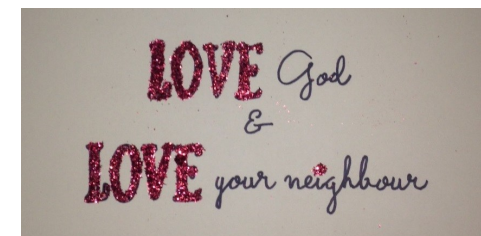 LOVE God
&
LOVE your neighbour